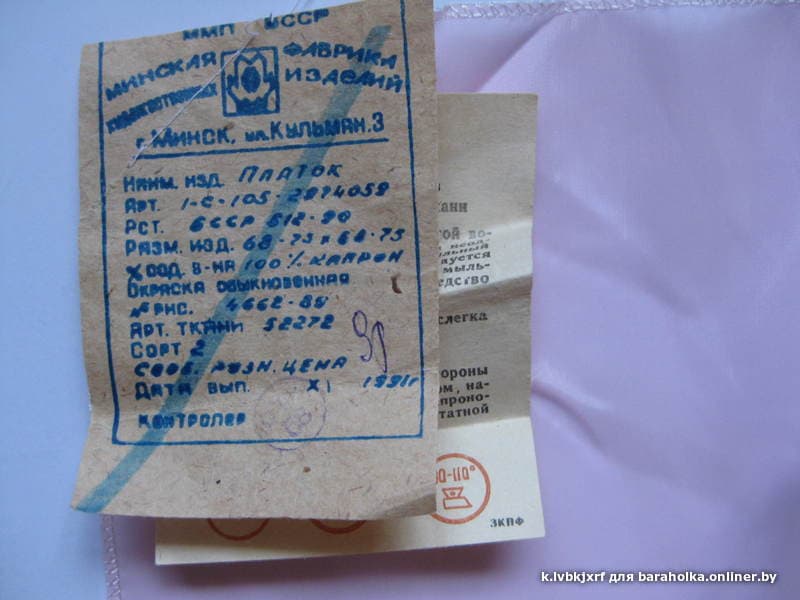 ММП БССР
МИНСКАЯ ФАБРИКА
ХУДОЖЕСТВЕННЫХ ИЗДЕЛИЙ
г. МИНСК, ул. КУЛЬМАН. 3
НАИМ. ИЗД. ПЛАТОК
АРТ. 1-С-105-2974059
РСТ. БССР 612-90
РАЗМ. ИЗД. 68-73 х 68-73
% СОД. В-НА 100% КАПРОН
ОКРАСКА ОБЫКНОВЕННАЯ
№ РИС. 4662-89
АРТ. ТКАНИ 52272
СОРТ 2
РОЗН. ЦЕНА 9р
ДАТА ВЫП. XI 1991г
КОНТРОЛЕР
кани
той во-
и неод-
льный
дуется
мыль-
едство
слегка
ороны
ом, на-
проно-
татной
ЗКПФ
k.lvbkjxrf для baraholka.onliner.by